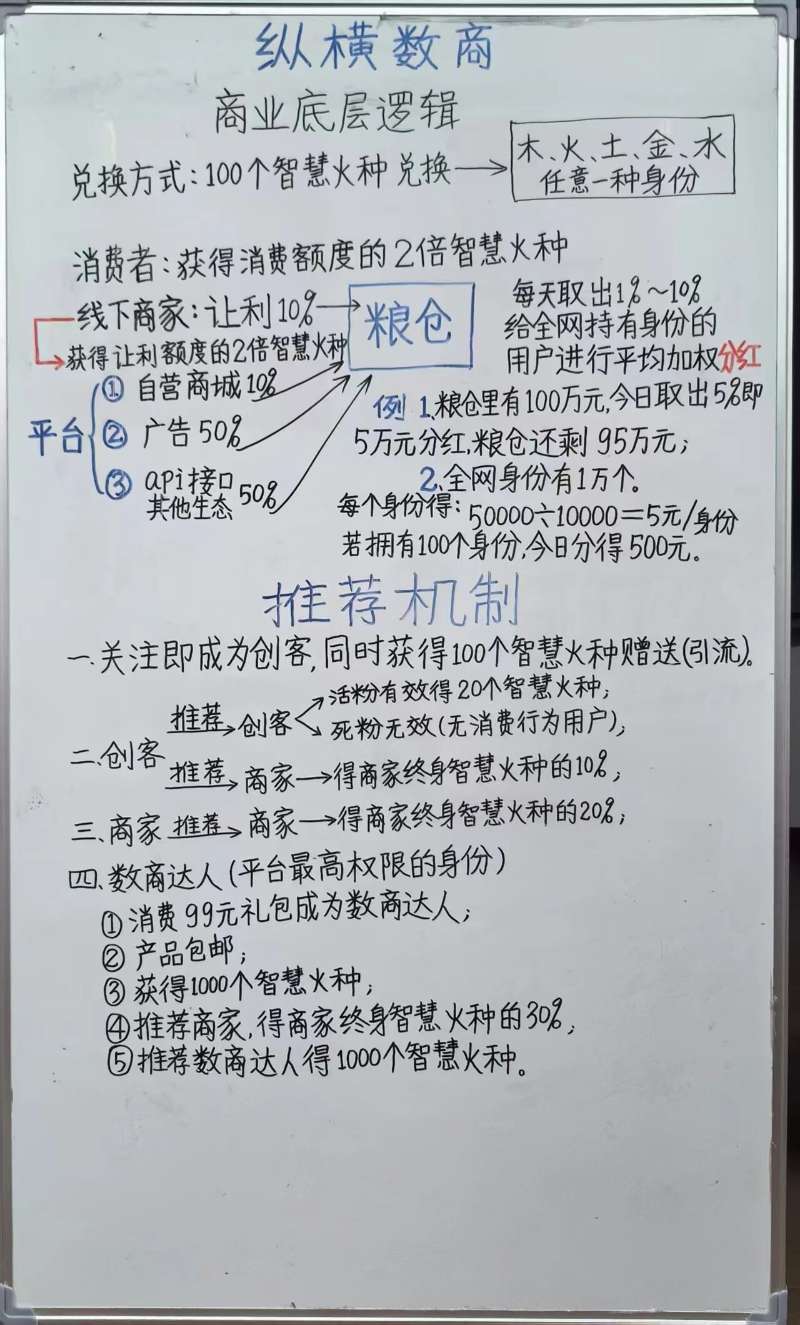 纵横数商
商业底层逻辑
兑换方式:100个智慧火种 兑换
木、火、土、金、水
任意一种身份
消费者:获得消费额度的2倍智慧火种
线下商家:让利10%
获得让利额度的2倍智慧火种
粮仓
每天取出1%~10%
给全网持有身份的
用户进行平均加权分红
平台
① 自营商城10%
② 广告50%
③ api接口
其他生态 50%
例 1.粮仓里有100万元,今日取出5%即
5万元分红,粮仓还剩95万元;
2.全网身份有1万个。
每个身份得:50000÷10000=5元/身份
若拥有100个身份,今日分得500元。
推荐机制
一.关注即成为创客,同时获得100个智慧火种赠送(引流)。
二.创客
推荐 创客
活粉有效得20个智慧火种;
死粉无效(无消费行为用户);
推荐 商家 得商家终身智慧火种的10%;
三.商家 推荐 商家 得商家终身智慧火种的20%;
四.数商达人(平台最高权限的身份)
①消费99元礼包成为数商达人;
②产品包邮;
③获得1000个智慧火种;
④推荐商家,得商家终身智慧火种的30%;
⑤推荐数商达人得1000个智慧火种。